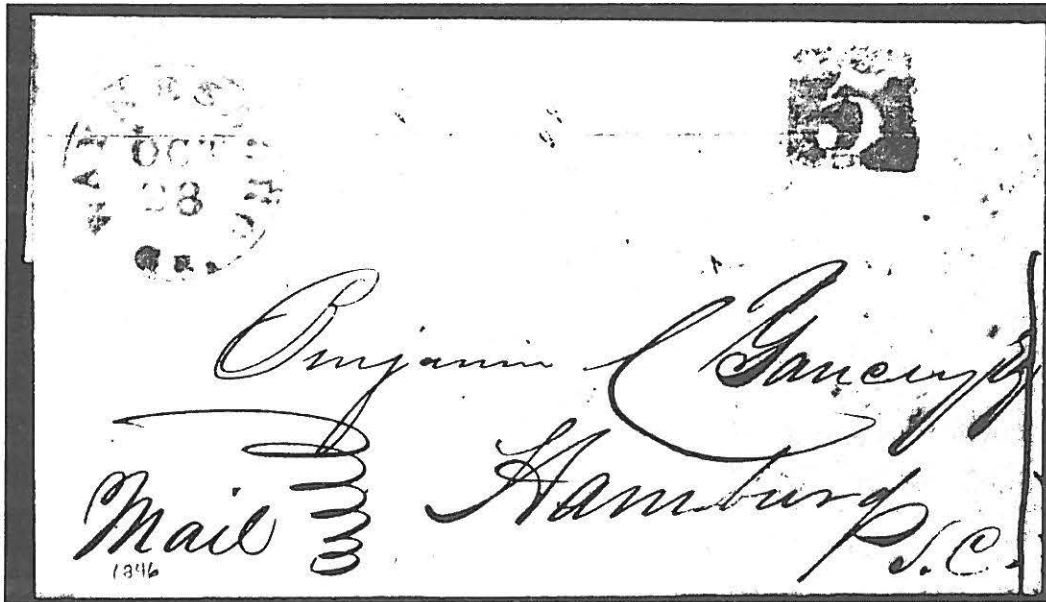 OCT
28
5
Benjamin C Yancey
Hamburg
S.C.
Mail
1846